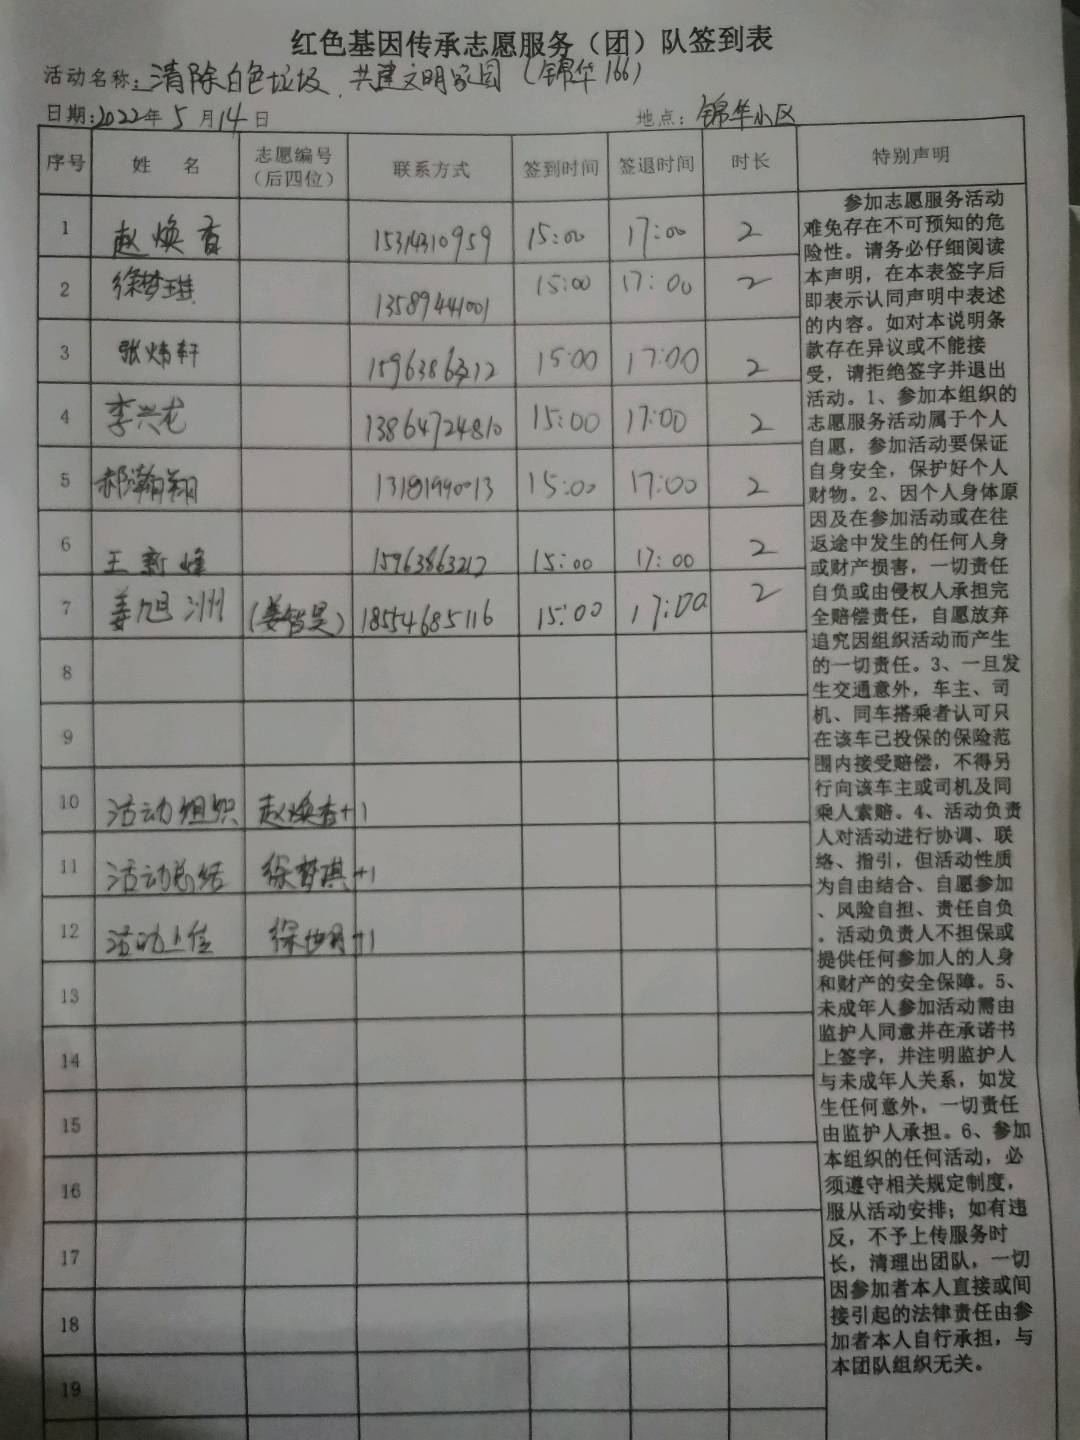 红色基因传承志愿服务（团）队签到表
活动名称：清除白色垃圾、共建文明家园（锦华166）
日期：2022年5月14日 地点：锦华小区
序号 姓 名 志愿编号（后四位） 联系方式 签到时间 签退时间 时长 特别声明
1 赵焕香 15314310959 15:00 17:00 2
2 徐梦琪 13589441001 15:00 17:00 2
3 张炜轩 15963863212 15:00 17:00 2
4 李兴龙 13864724810 15:00 17:00 2
5 郝瀚翔 13181990013 15:00 17:00 2
6 王新 15963863212 15:00 17:00 2
7 姜旭洲 (姜智昊) 18554685116 15:00 17:00 2
8
9
10 活动组织 赵焕香+1
11 活动总结 徐梦琪+1
12 活动上传 徐 +1
13
14
15
16
17
18
19
参加志愿服务活动
难免存在不可预知的危
险性。请务必仔细阅读
本声明，在本表签字后
即表示认同声明中表述
的内容。如对本说明条
款存在异议或不能接
受，请拒绝签字并退出
活动。1、参加本组织的
志愿服务活动属于个人
自愿，参加活动要保证
自身安全，保护好个人
财物。2、因个人身体原
因及在参加活动或在往
返途中发生的任何人身
或财产损害，一切责任
自负或由侵权人承担完
全赔偿责任，自愿放弃
追究因组织活动而产生
的一切责任。3、一旦发
生交通意外，车主、司
机、同车搭乘者认可只
在该车已投保的保险范
围内接受赔偿，不得另
行向该车主或司机及同
乘人索赔。4、活动负责
人对活动进行协调、联
络、指引，但活动性质
为自由结合、自愿参加
、风险自担、责任自负
。活动负责人不担保或
提供任何参加人的人身
和财产的安全保障。5、
未成年人参加活动需由
监护人同意并在承诺书
上签字，并注明监护人
与未成年人关系，如发
生任何意外，一切责任
由监护人承担。6、参加
本组织的任何活动，必
须遵守相关规定制度，
服从活动安排；如有违
反，不予上传服务时
长，清理出团队，一切
因参加者本人直接或间
接引起的法律责任由参
加者本人自行承担，与
本团队组织无关。